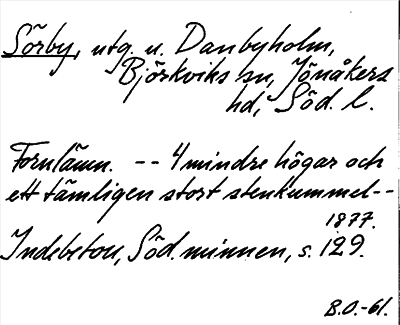 Sörby, utg. u. Danbyholm,
Björkviks sn, Jönåkers
hd, Söd. l.
Fornlämn. -- 4 mindre högar och
ett tämligen stort stenkummel--
1877.
Indebetou, Söd. minnen, s. 129.
B.O.-61.